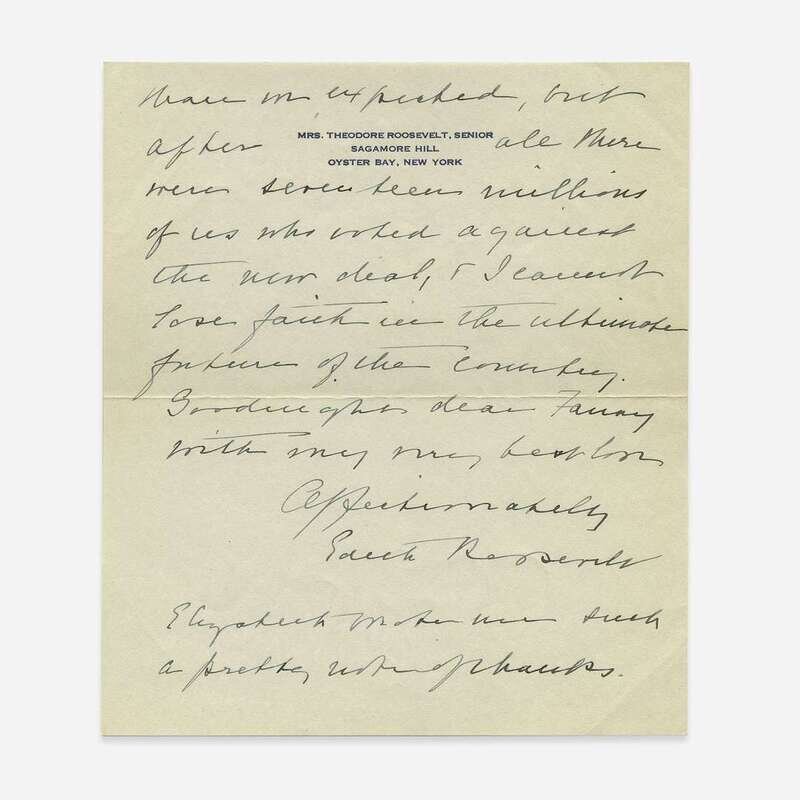 than we expected, but
MRS. THEODORE ROOSEVELT, SENIOR
SAGAMORE HILL
OYSTER BAY, NEW YORK
after all there
were seventeen millions
of us who voted against
the new deal, & I cannot
lose faith in the ultimate
future of the country.
Goodnight dear Fanny
with my very best love
Affectionately
Edith Roosevelt
Elizabeth wrote me such
a pretty note of thanks.